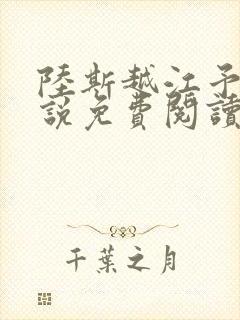 陸斯越江予
說免費閱讀
千葉之月